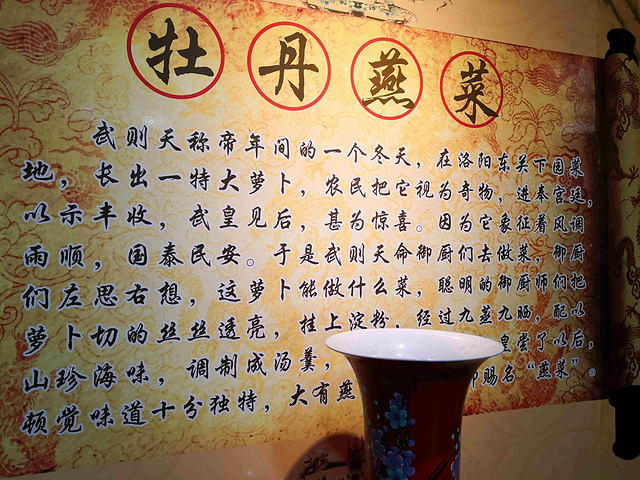 牡丹燕菜
武则天称帝年间的一个冬天，在洛阳东关下园菜
地，长出一特大萝卜，农民把它视为奇物，进奉宫廷，
以示丰收，武皇见后，甚为惊喜。因为它象征着风调
雨顺，国泰民安。于是武则天命御厨们去做菜，御厨
们左思右想，这萝卜能做什么菜，聪明的御厨师们把
萝卜切的丝丝透亮，挂上淀粉，经过九蒸九晒，配以
山珍海味，调制成汤羹，皇尝了以后，
顿觉味道十分独特，大有燕赐名“燕菜”。